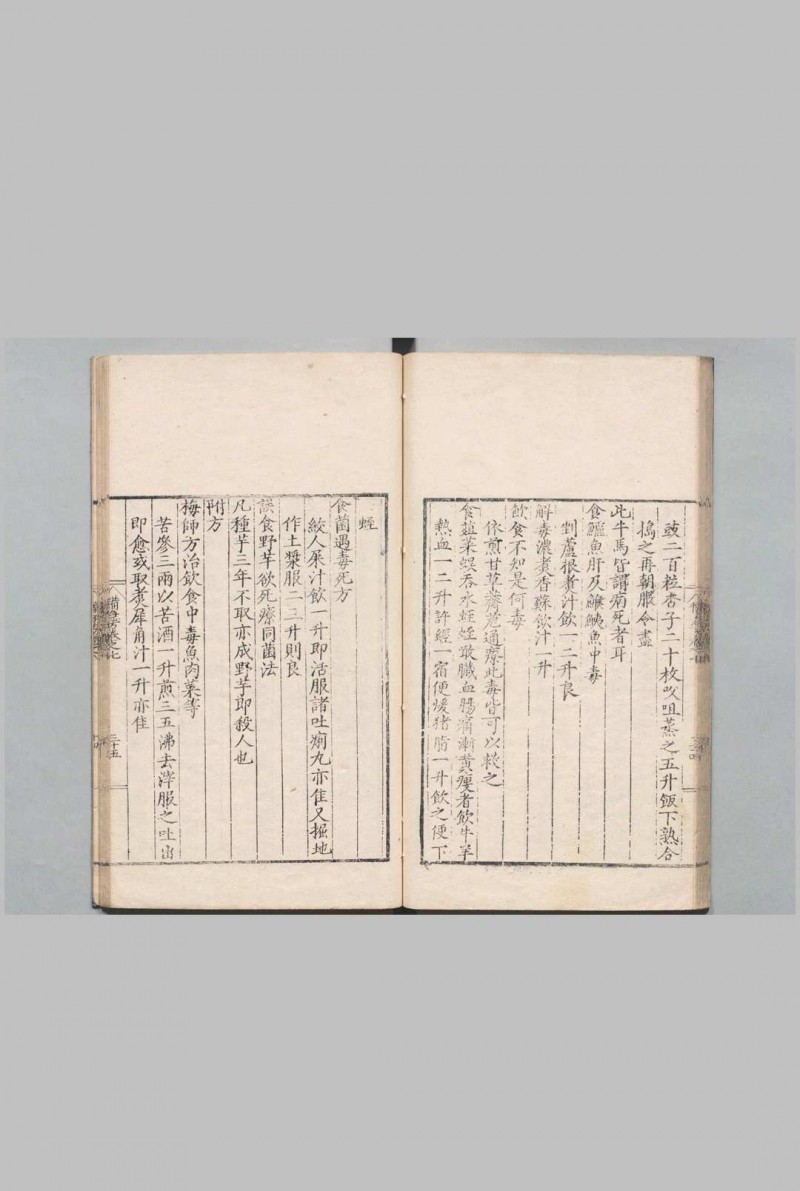 豉二百粒杏子二十枚㕮咀蒸之五升飯下熟合
搗之再朝服令盡
此牛馬皆謂病死者耳
食鱸魚肝及鯸鮧魚中毒
剉蘆根煮汁飲一二升良
解毒濃煮香蘇飲汁一升
飲食不知是何毒
依前甘草薺苨通療此毒皆可以救之
食薀菜悮吞水蛭蛭噉臓血腸痛漸黄瘦者飲牛羊
熱血一二升許經一宿便煖猪脂一升飲之便下
蛭
食菌遇毒死方
絞人屎汁飲一升即活服諸吐痢丸亦佳又掘地
作土漿服二三升則良
誤食野芋欲死療同菌法
凡種芋三年不取亦成野芋即殺人也
附方
梅師方治飲食中毒魚肉菜等
苦參三兩以苦酒一升煎三五沸去滓服之吐出
即愈或取煮犀角汁一升亦佳
三十五